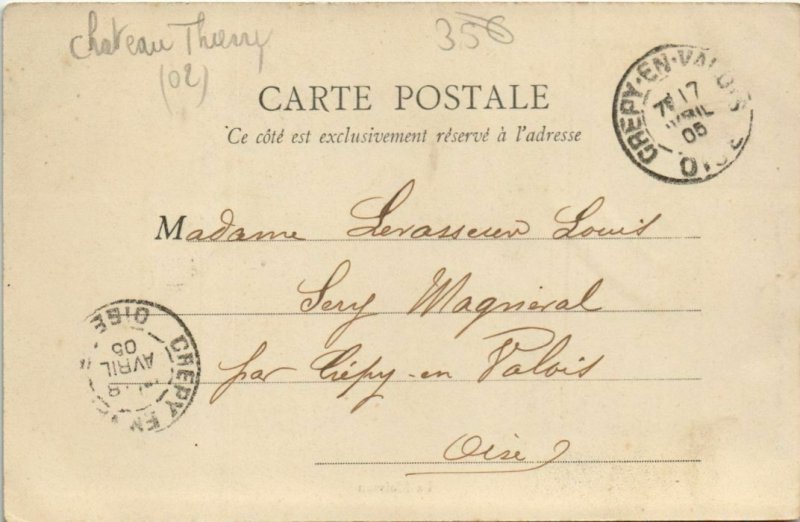 Chateau Thierry
(02)
356
CARTE POSTALE
Ce côté est exclusivement réservé à l'adresse
CREPY-EN-VALOIS
7E 17
AVRIL
05
OISE
Madame Levasseur Louis
Sery Magneval
par Crépy-en Valois
Oise
CREPY EN
OISE
AVRIL
05